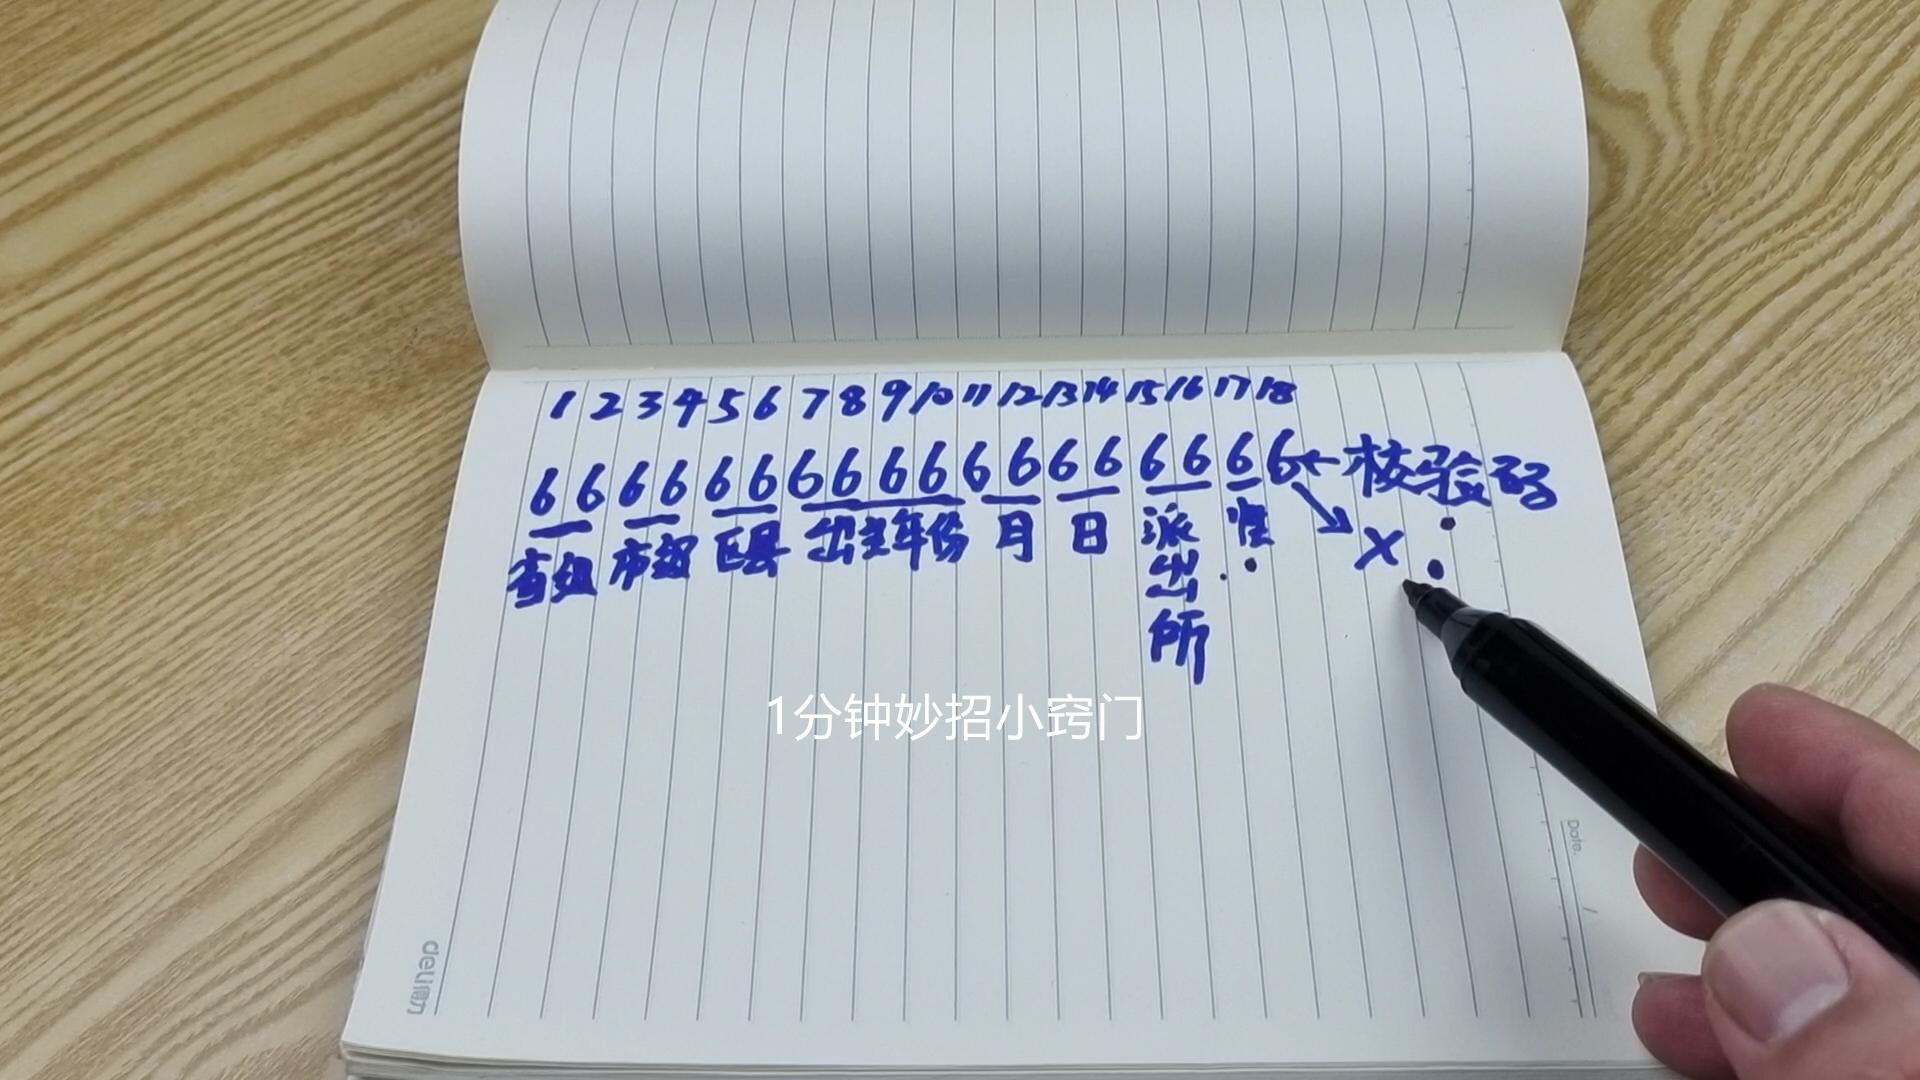 1 2 3 4 5 6 7 8 9 10 11 12 13 14 15 16 17 18
6 6 6 6 6 6 6 6 6 6 6 6 6 6 6 6 6 6 ← 核验码
省级 市级 区县 出生年份 月 日 派出所 性 X
1分钟妙招小窍门
Date.
deli得力